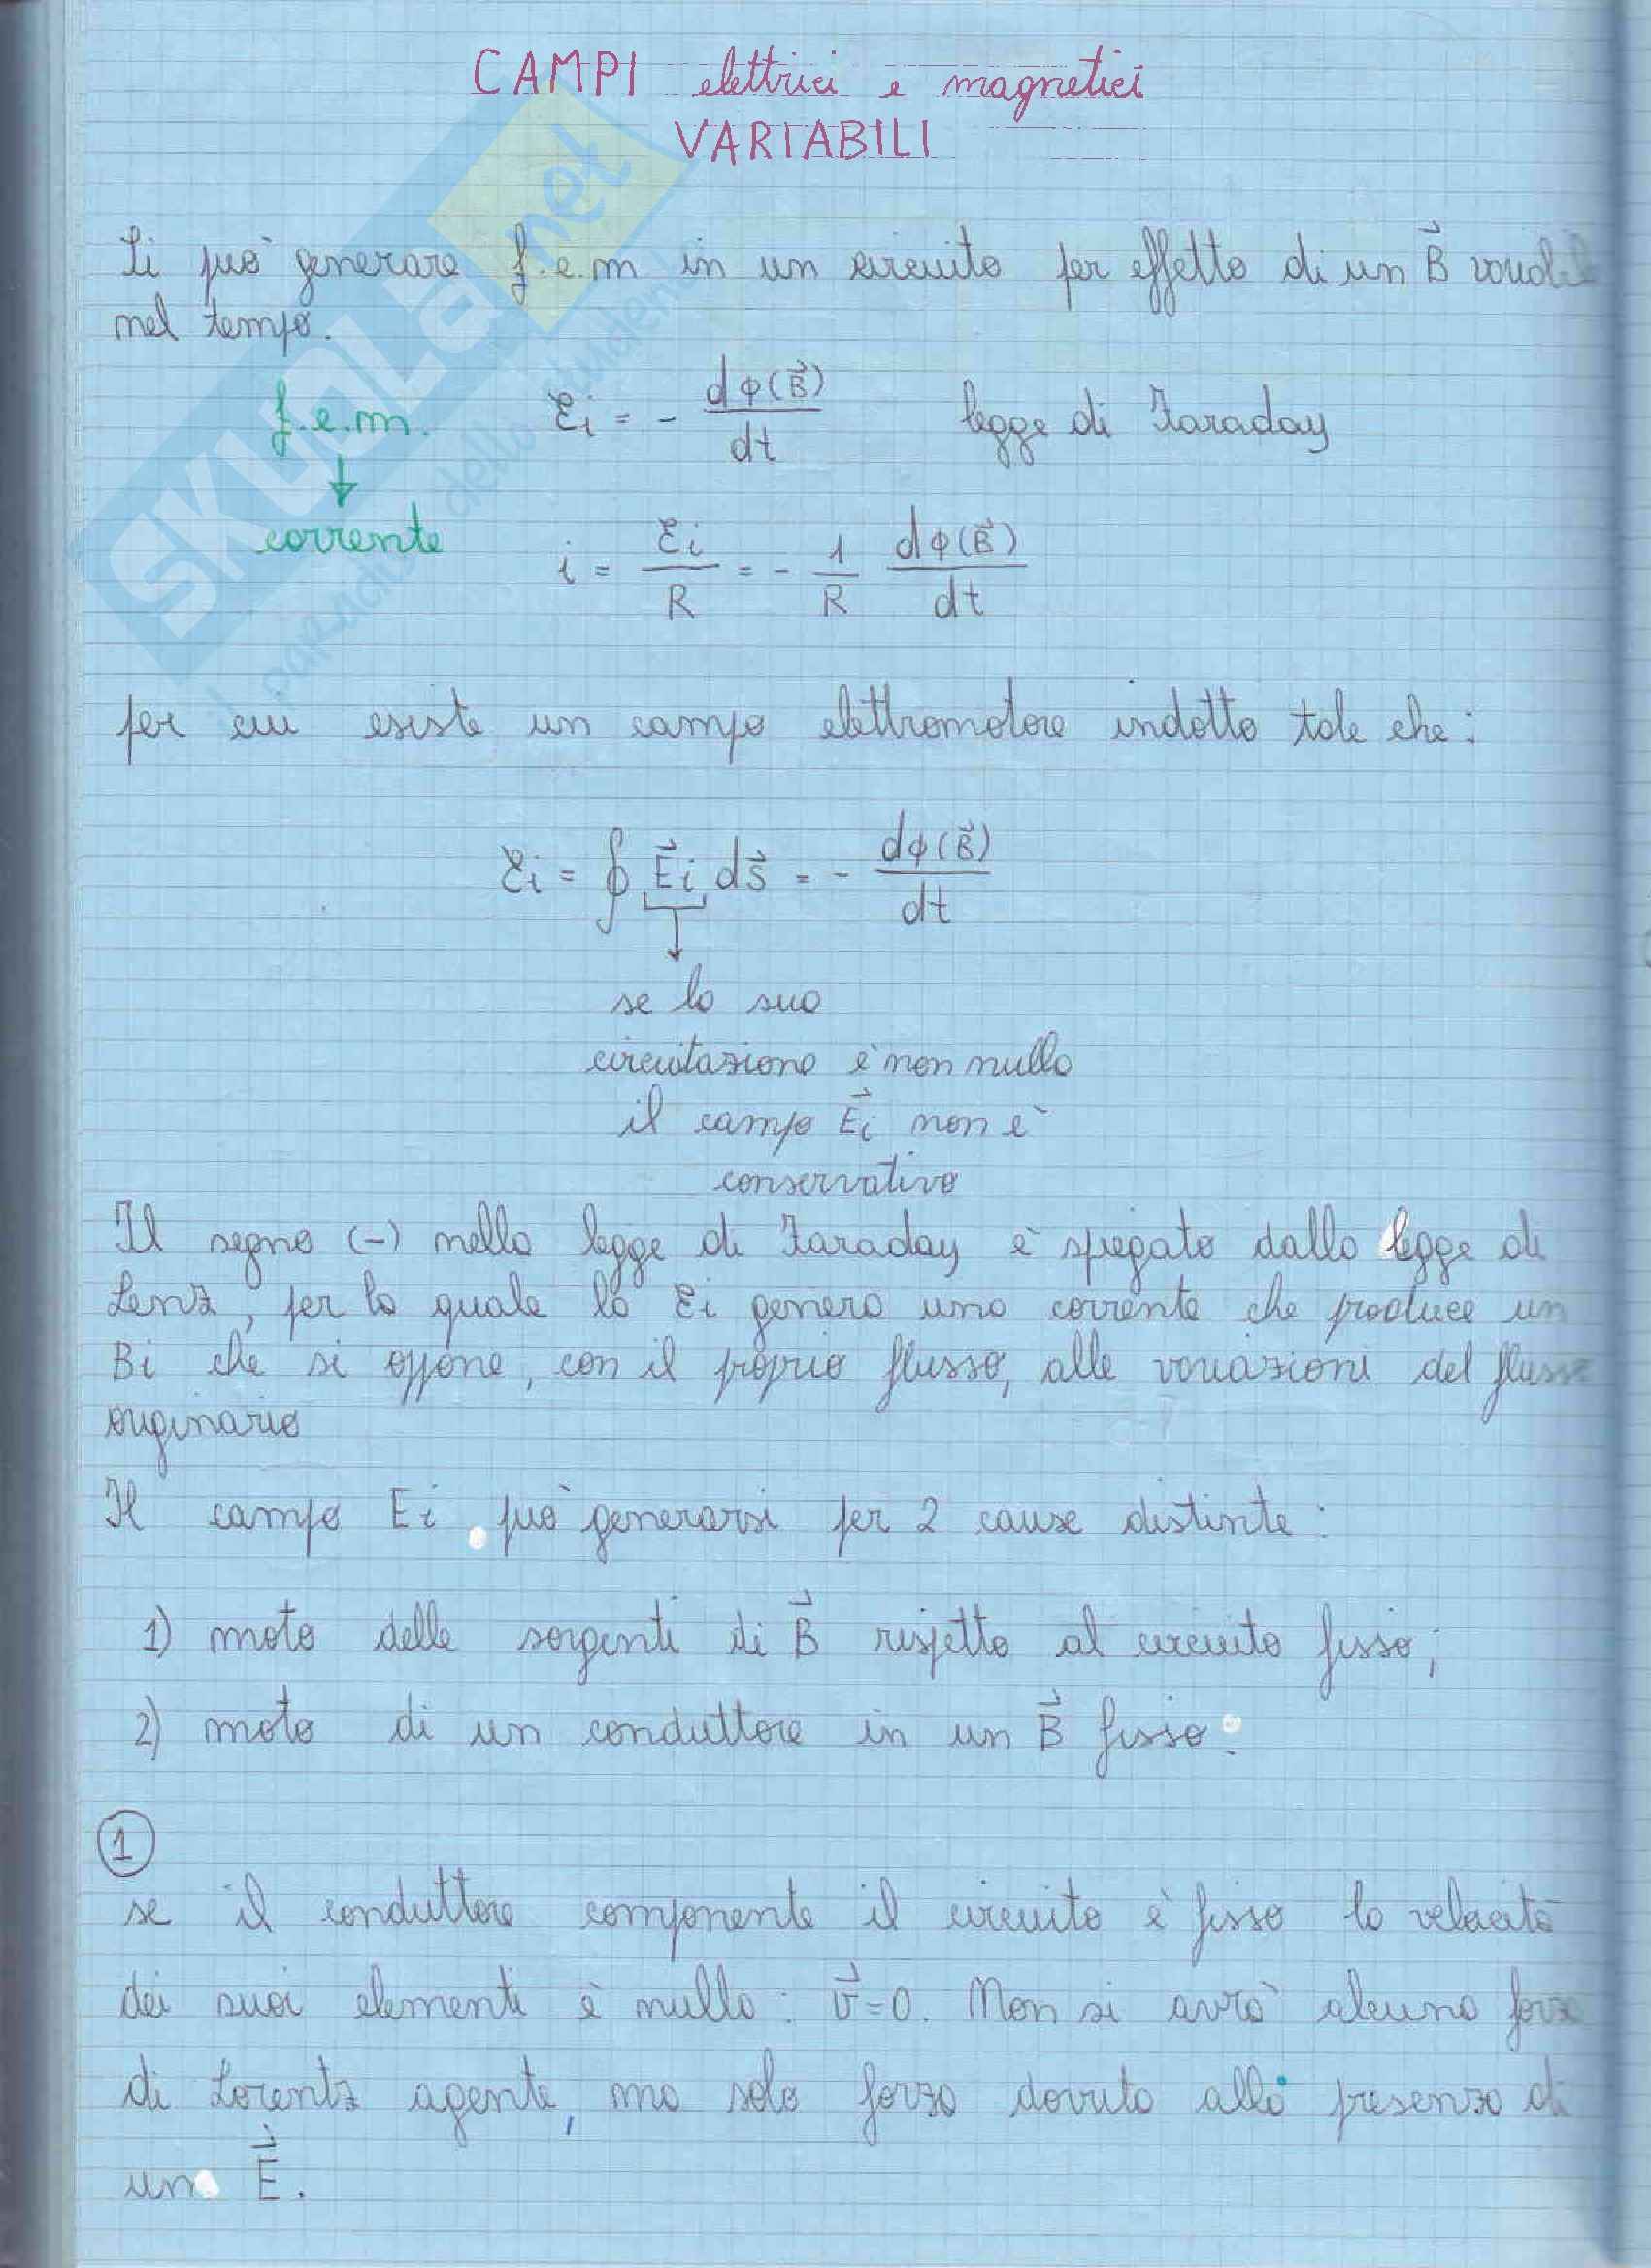 CAMPI elettrici e magnetici
VARIABILI
Si può generare f.e.m in un circuito per effetto di un B⃗ variabile
nel tempo.
f.e.m. ℰi = - dΦ(B⃗)/dt legge di Faraday
↓
corrente i = ℰi/R = - 1/R dΦ(B⃗)/dt
per cui esiste un campo elettromotore indotto tale che:
ℰi = ∮ E⃗i ds⃗ = - dΦ(B⃗)/dt
se la sua
circuitazione è non nulla
il campo E⃗i non è
conservativo
Il segno (-) nella legge di Faraday è spiegato dalla legge di
Lenz, per la quale la ℰi genera una corrente che produce un
Bi che si oppone, con il proprio flusso, alle variazioni del flusso
originario
Il campo Ei può generarsi per 2 cause distinte:
1) moto delle sorgenti di B⃗ rispetto al circuito fisso;
2) moto di un conduttore in un B⃗ fisso.
1
se il conduttore componente il circuito è fisso la velocità
dei suoi elementi è nulla: v⃗=0. Non si avrà alcuna forza
di Lorentz agente, ma solo forza dovuta alla presenza di
un E⃗.
SKUOLA.net